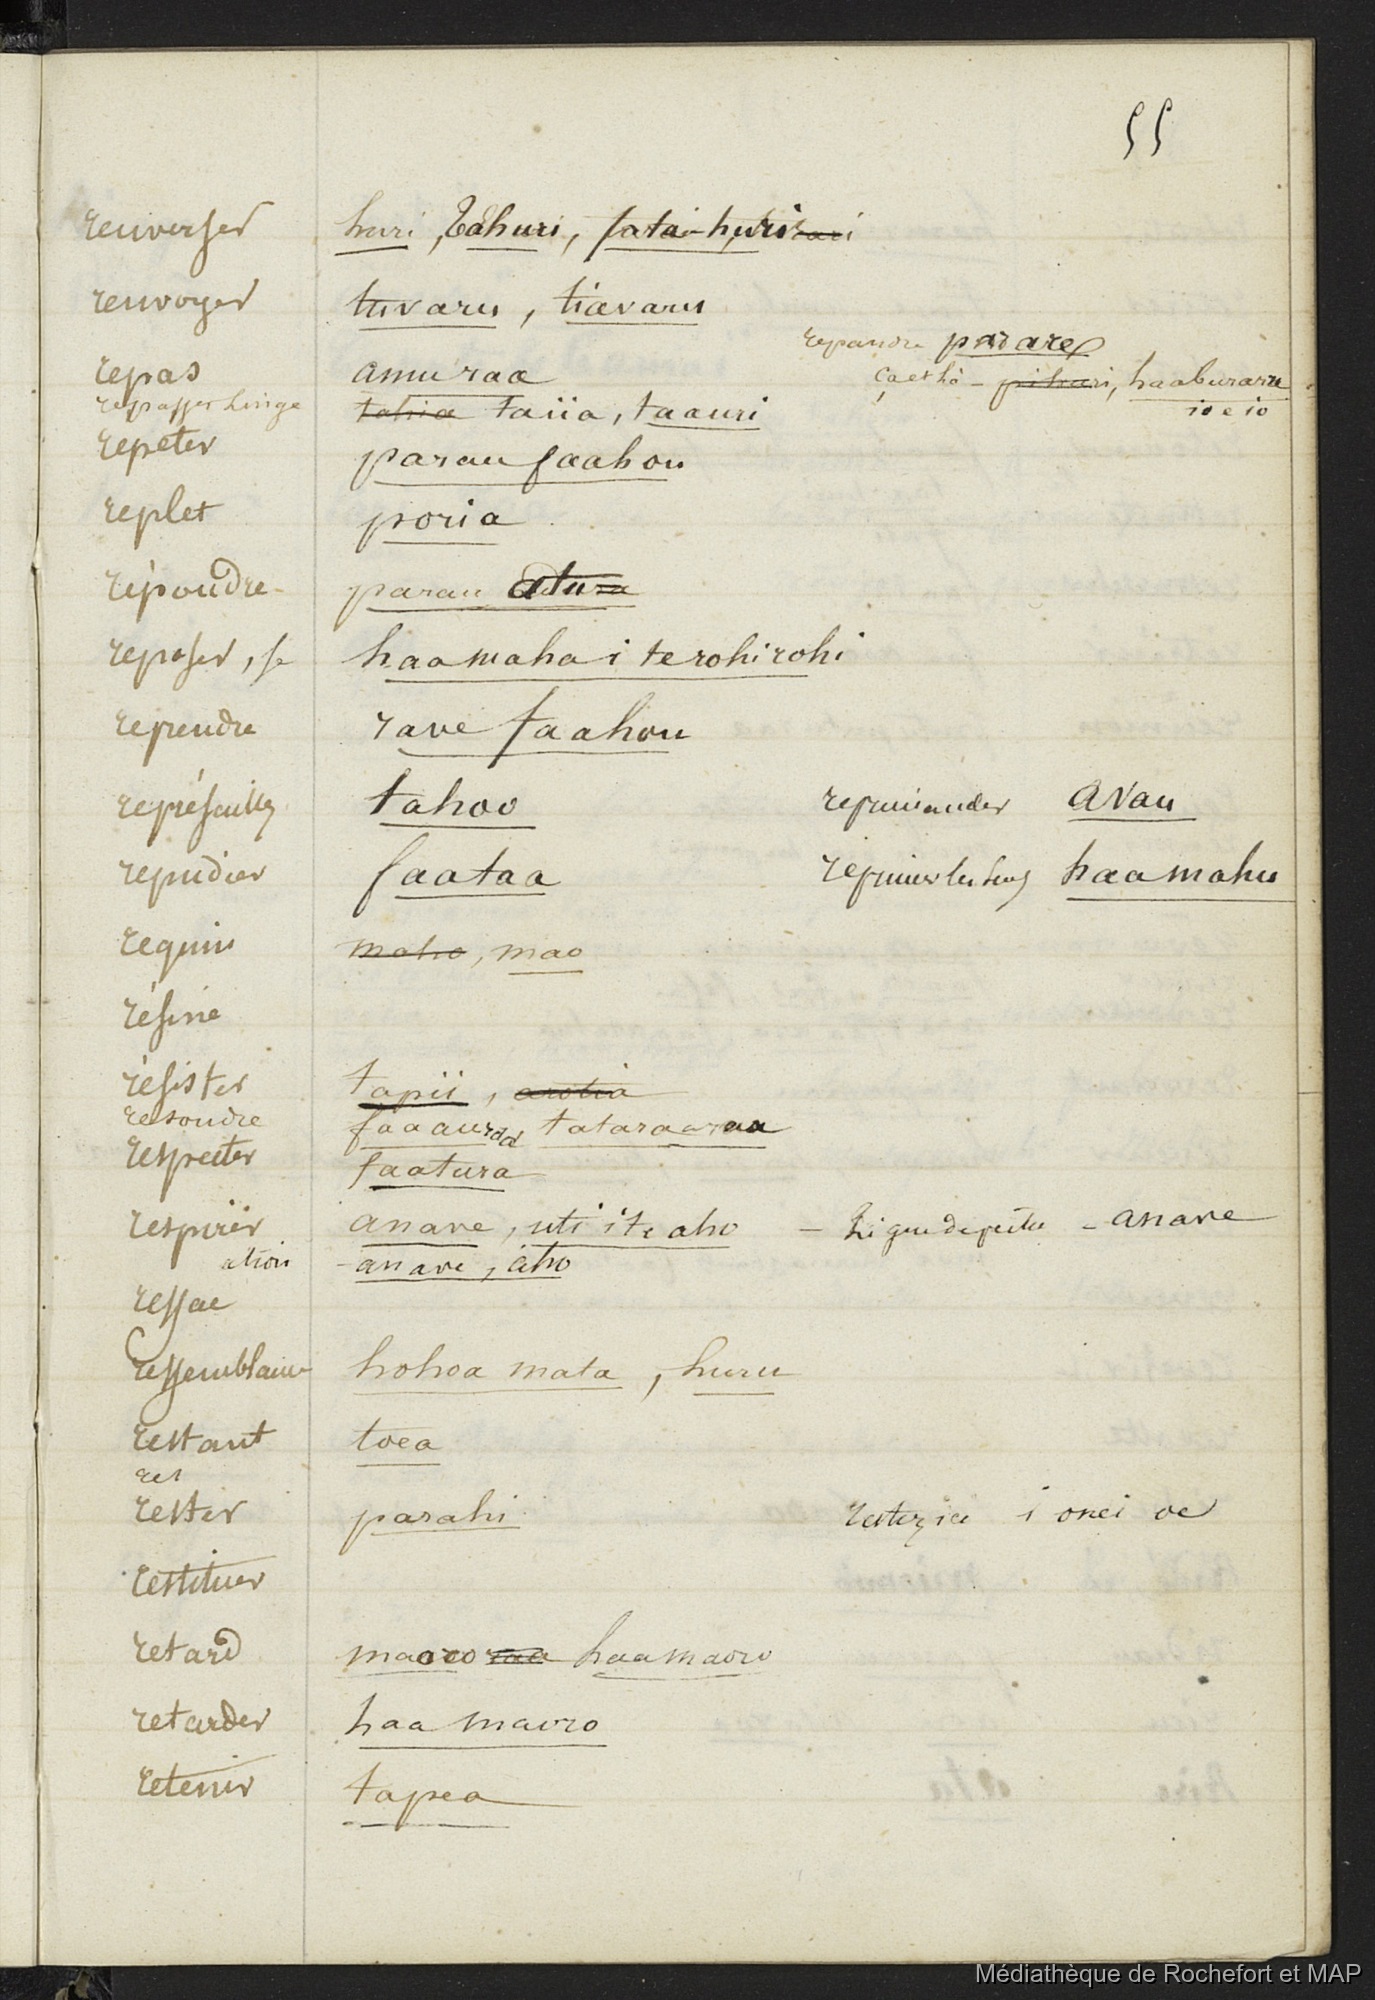 55
renverser huri, tahuri, fatai-huri
renvoyer tuvaru, tiavaru
repandre parare
repas amuraa
ça et là - pihuri, haaburaru
repasser linge tahia taiia, taauri
io e io
repeter parau faahou
replet poria
répondre parau atu
reposer, se haamaha i te rohirohi
reprendre rave faahou
représailles tahoo reprimander avau
repudier faataa reprimer les haamahu
requin maho, mao
résine
résister tapii, arotia
resoudre faaau tataraaraa
respecter faatura
respirer anave, uti i te aho - Ligne de peche - anave
ation anave, aho
ressac
ressemblance hohoa mata, huru
restant toea
res
rester parahi restez ici i onei oe
restituer
retard maoro raa haamaoro
retarder haa maoro
retenir tapea
Médiathèque de Rochefort et MAP